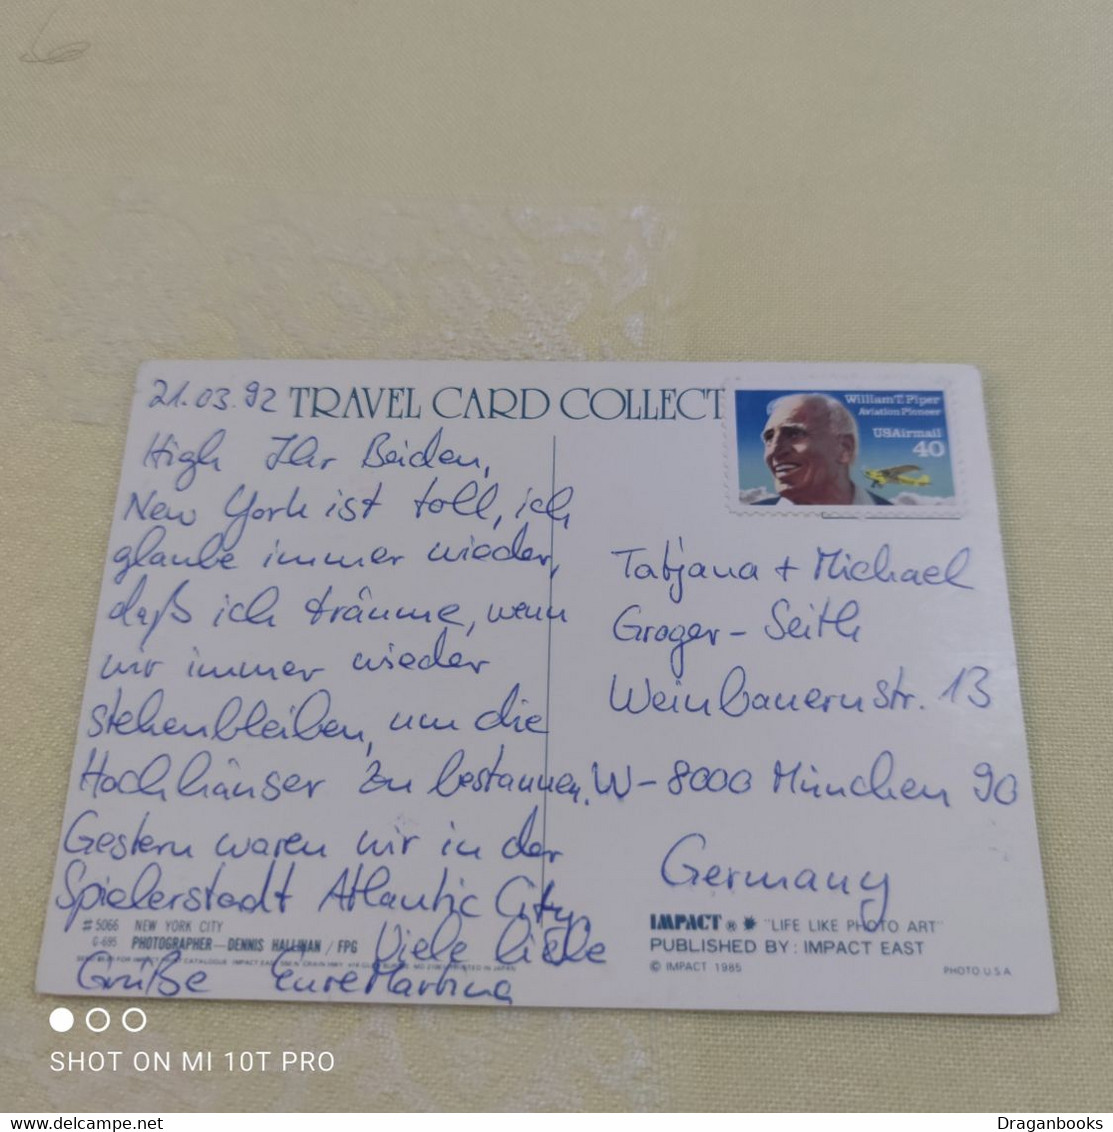 21.03.92 TRAVEL CARD COLLECT
William T. Piper
Aviation Pioneer
USAirmail
40
High Ihr Beiden,
New York ist toll, ich
glaube immer wieder,
daß ich träume, wenn
wir immer wieder
stehenbleiben, um die
Hochhäuser zu bestaunen.
Gestern waren wir in der
Spielerstadt Atlantic City.
Viele liebe
Grüße Eure Martina
Tatjana + Michael
Groger-Seith
Weinbauernstr. 13
W-8000 München 90
Germany
#5066 NEW YORK CITY
G-695 PHOTOGRAPHER—DENNIS HALLINAN / FPG
IMPACT ® "LIFE LIKE PHOTO ART"
PUBLISHED BY: IMPACT EAST
© IMPACT 1985
PHOTO U.S.A
SHOT ON MI 10T PRO
Draganbooks